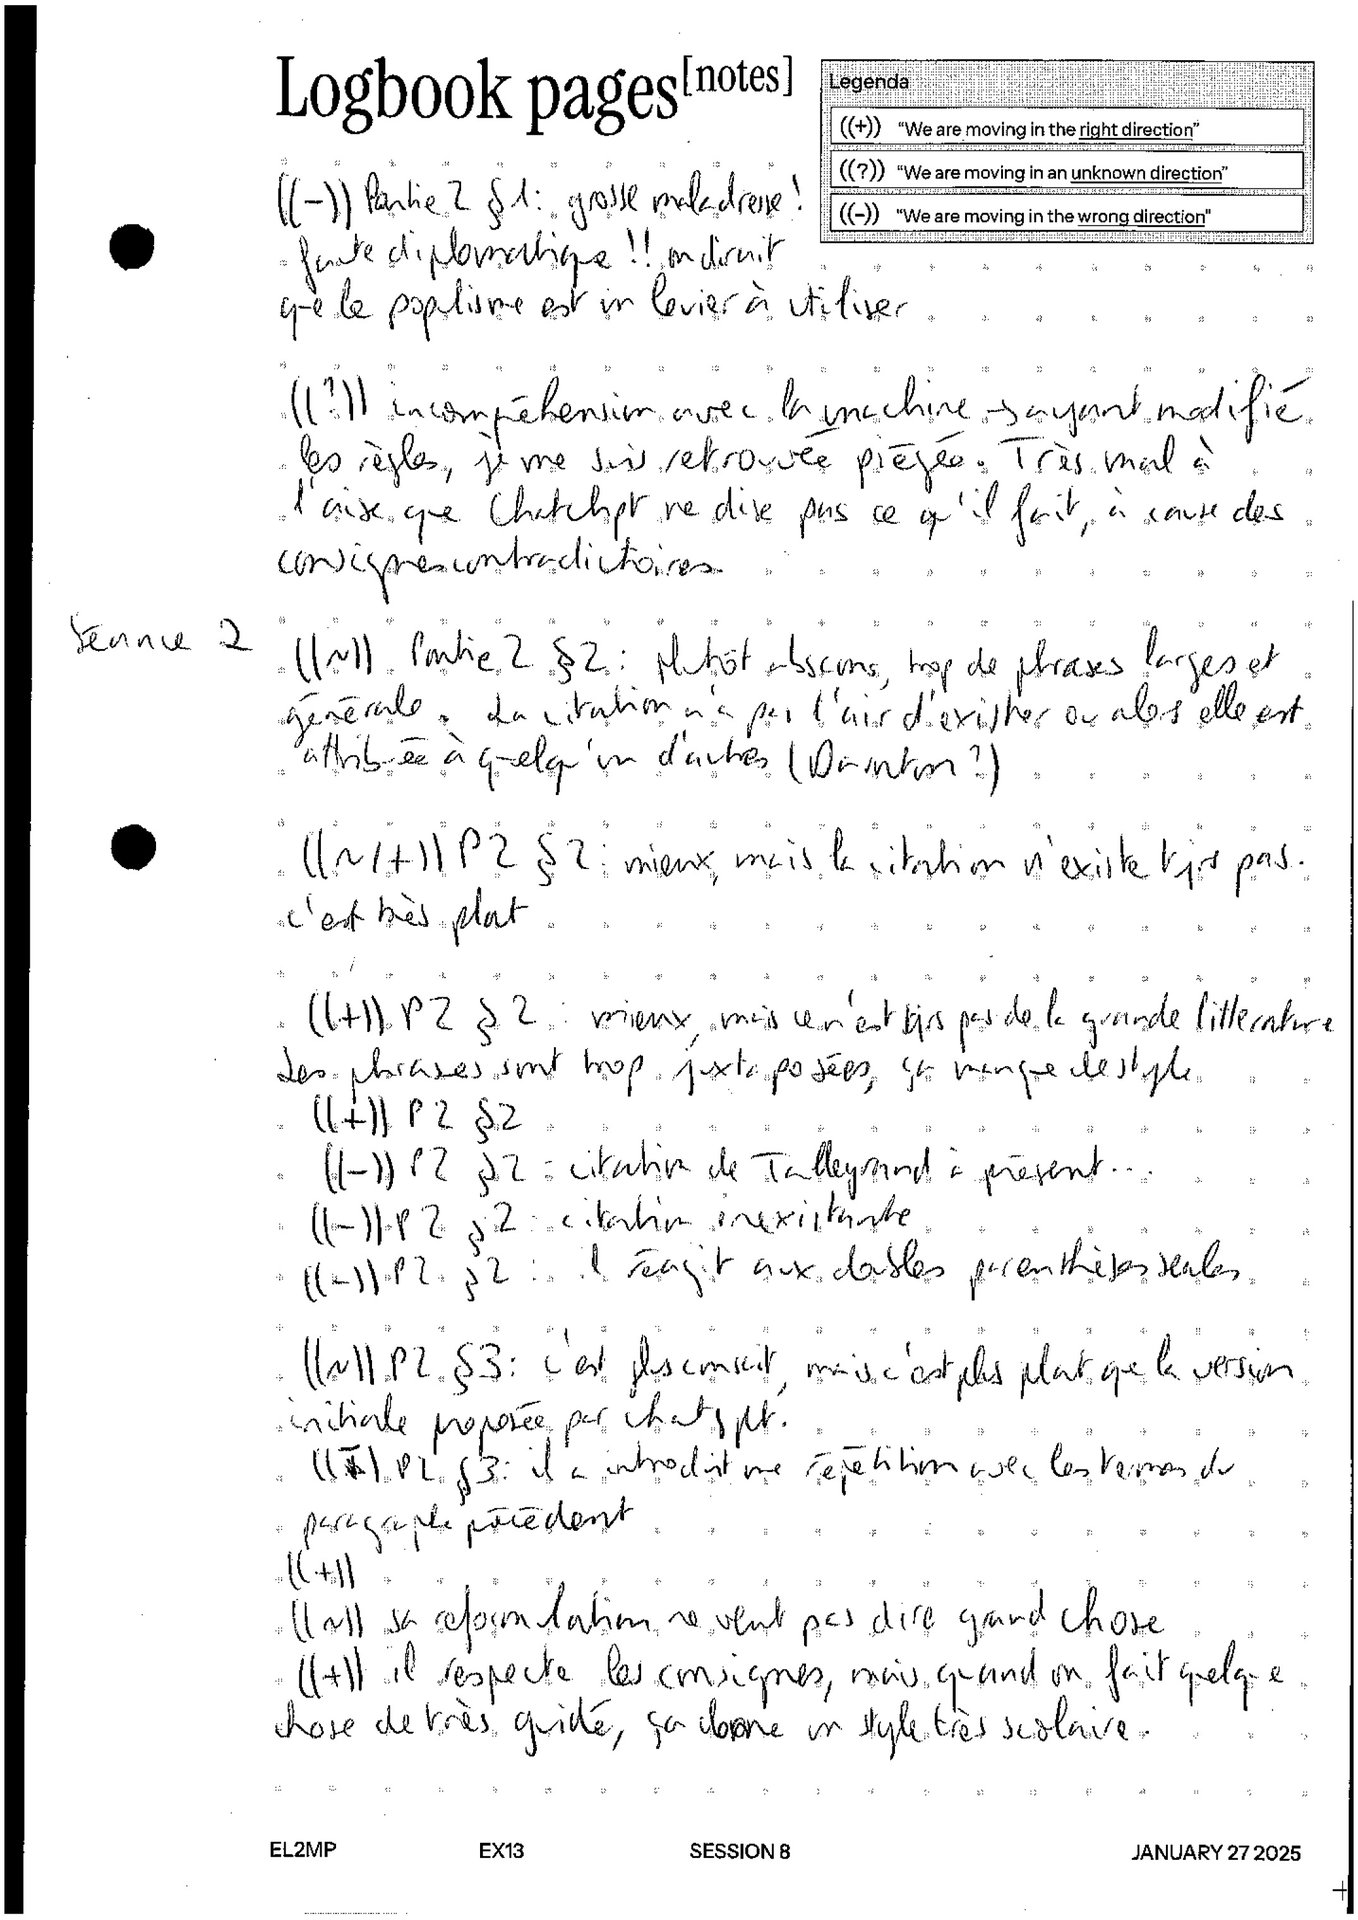 Logbook pages[notes]
Legenda
((+)) "We are moving in the right direction"
((?)) "We are moving in an unknown direction"
((-)) "We are moving in the wrong direction"
((-)) Partie 2 §1: grosse maladresse !
faute diplomatique !! on dirait
que le populisme est un levier à utiliser
((?)) incompréhension avec la machine → ayant modifié
les règles, je me suis retrouvée piégée. Très mal à
l'aise que Chatgpt ne dise pas ce qu'il fait, à cause des
consignes contradictoires
Séance 2
((~)) Partie 2 §2: plutôt abscons, trop de phrases larges et
générale. La citation n'a pas l'air d'exister ou alors elle est
attribuée à quelqu'un d'autres (Darnton?)
((~/+)) P2 §2: mieux, mais la citation n'existe tjrs pas.
c'est très plat
((+)) P2 §2: mieux, mais ce n'est tjrs pas de la grande littérature
Les phrases sont trop juxtaposées, ça manque de style
((+)) P2 §2
((-)) P2 §2: citation de Talleyrand à présent...
((-)) P2 §2: citation inexistante
((-)) P2 §2: il réagit aux doubles parenthèses seules
((~)) P2 §3: c'est plus concis, mais c'est plus plat que la version
initiale proposée par chatgpt.
P2 §3: il a introduit une répétition avec les termes du
paragraphe précédent
((+))
((~)) sa reformulation ne veut pas dire grand chose
((+)) il respecte les consignes, mais quand on fait quelque
chose de très guidé, ça donne un style très scolaire.
EL2MP EX13 SESSION 8 JANUARY 27 2025